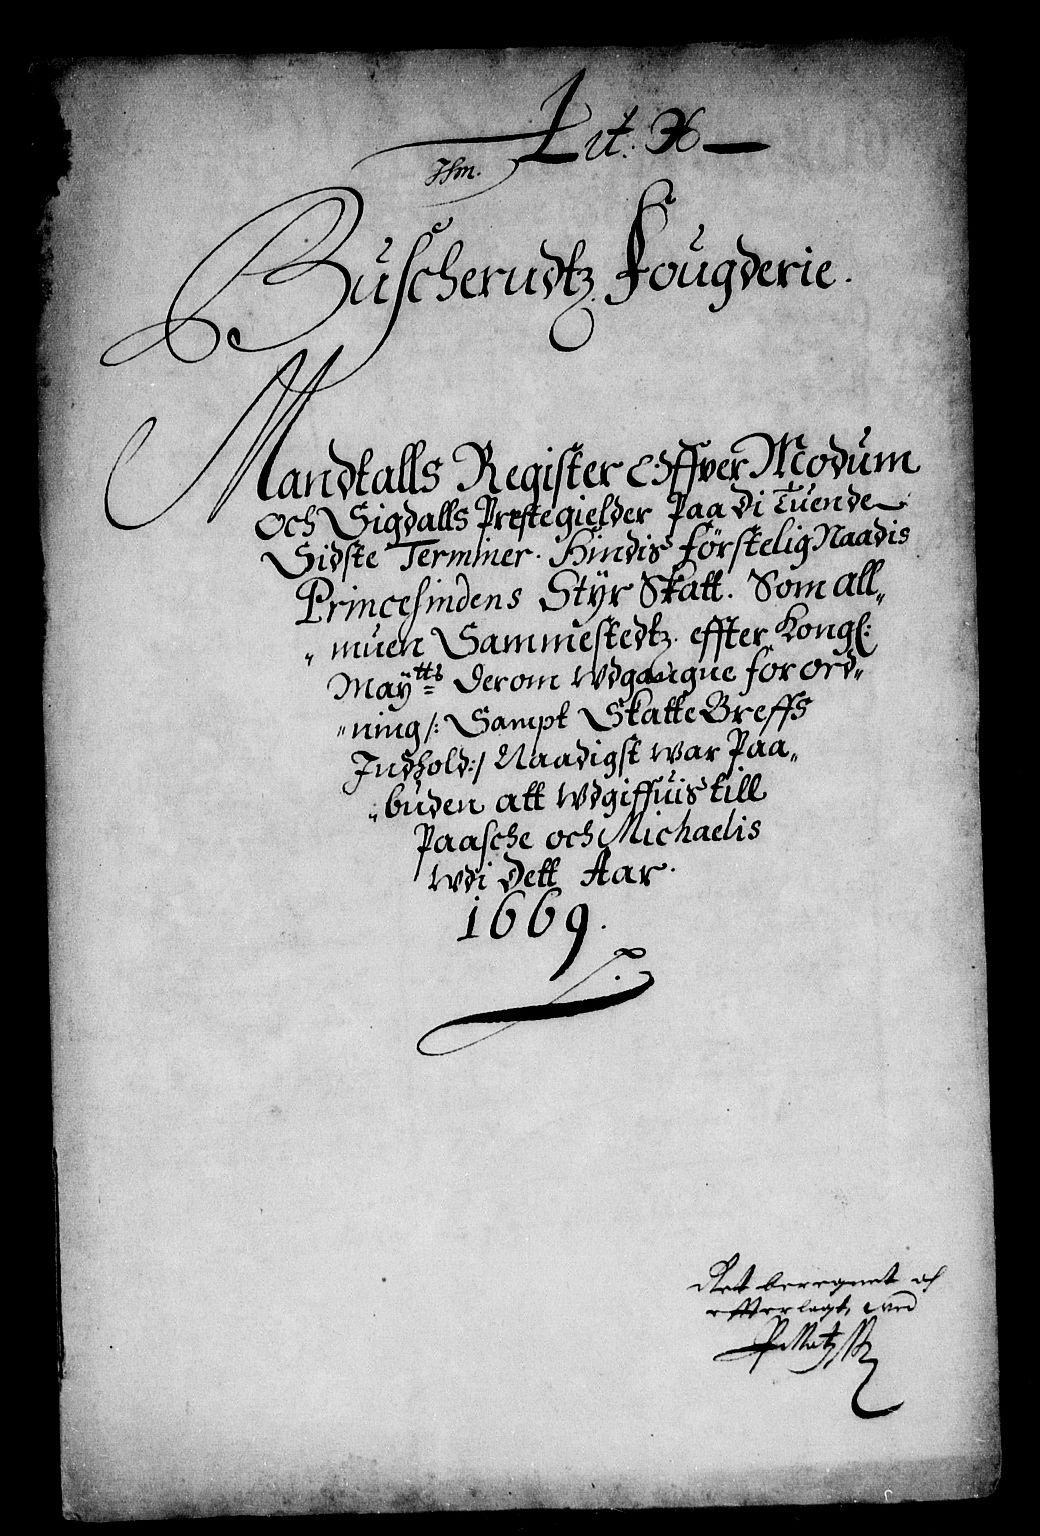 Lit. H
Buscherudtz Fougderie.
Mandtalls Register Offver Modum
Och Sigdalls Prestegielder Paa Di Tuende
Sidste Terminer. Hindis förstelig Naadis
Princesindens Styr Skatt. Som all„
„muen Sammestedtz. effter Kongl:
Maÿtts Derom Wdgangne for ord„
„ning /: Sampt Skatte Breffs
Indhold :/ Naadigst War Paa„
„buden att Wdgiffuis till
Paasche och Michaelis
Wdi Dett Aar.
1669.
Ret beregnet och
effterlagt,